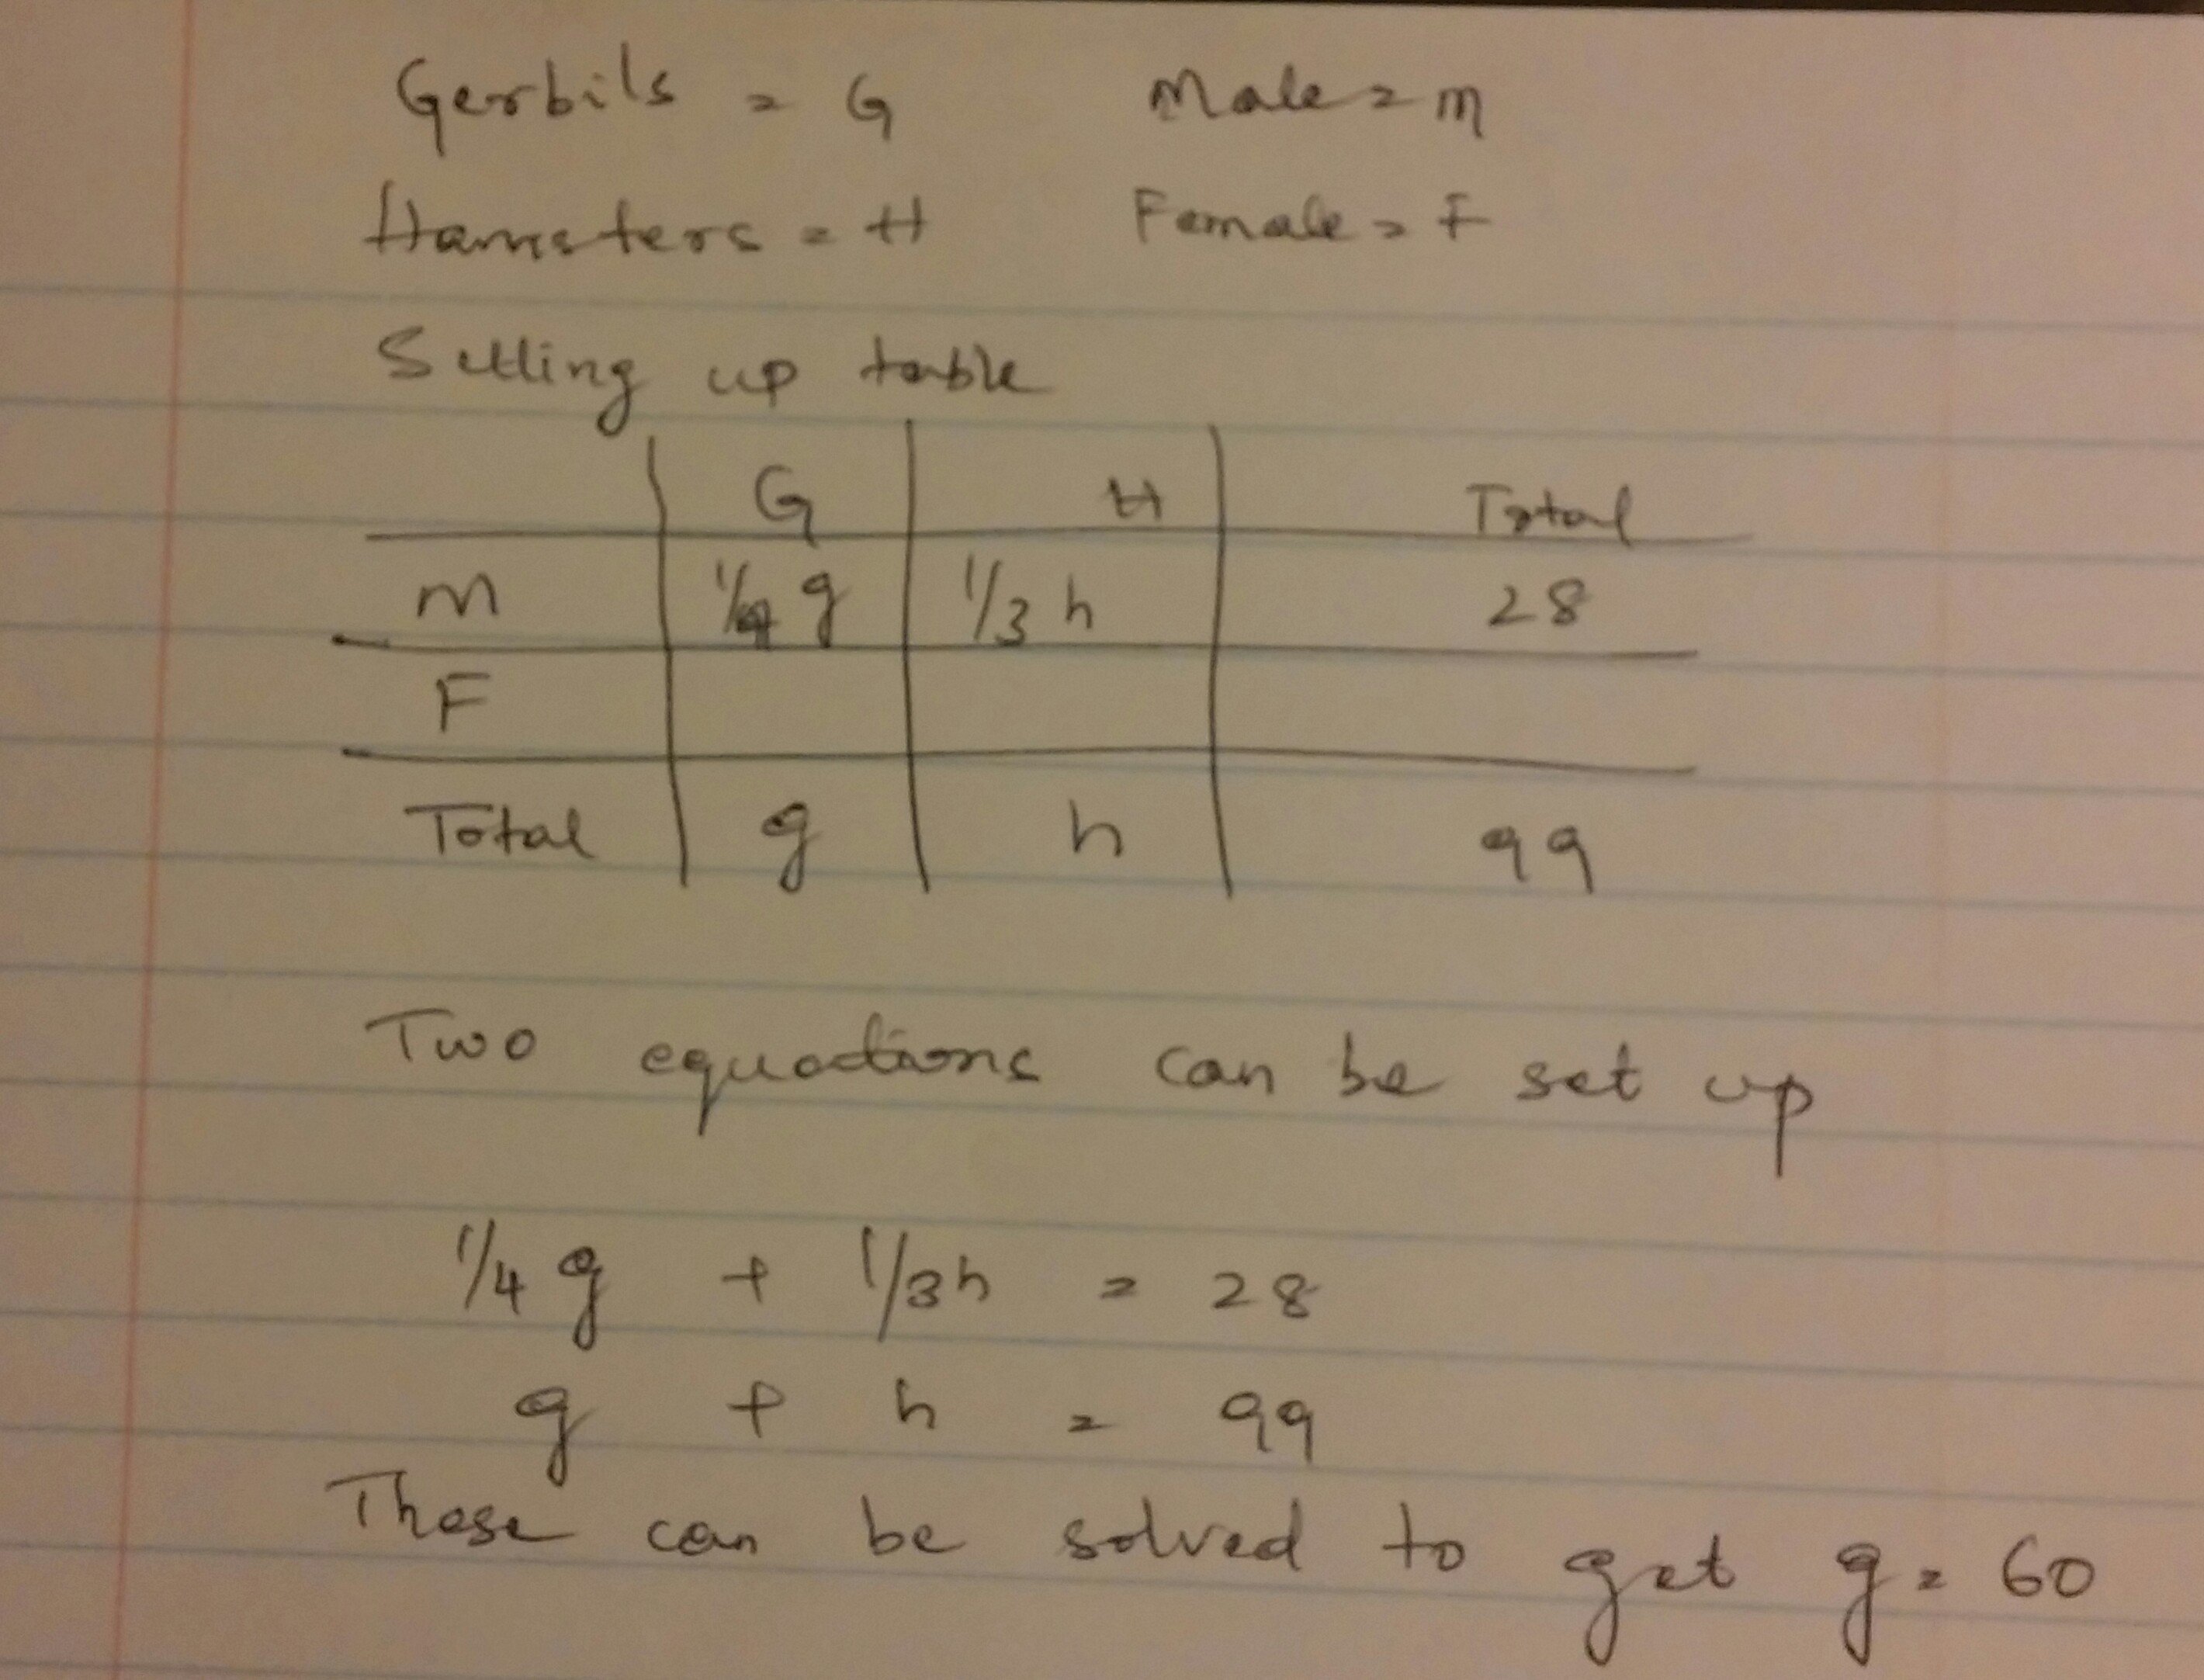 Gerbils = G Male = M
Hamsters = H Female = F
Setting up table
G H Total
M 1/4 g 1/3 h 28
F
Total g h 99
Two equations can be set up
1/4 g + 1/3 h = 28
g + h = 99
These can be solved to get g = 60